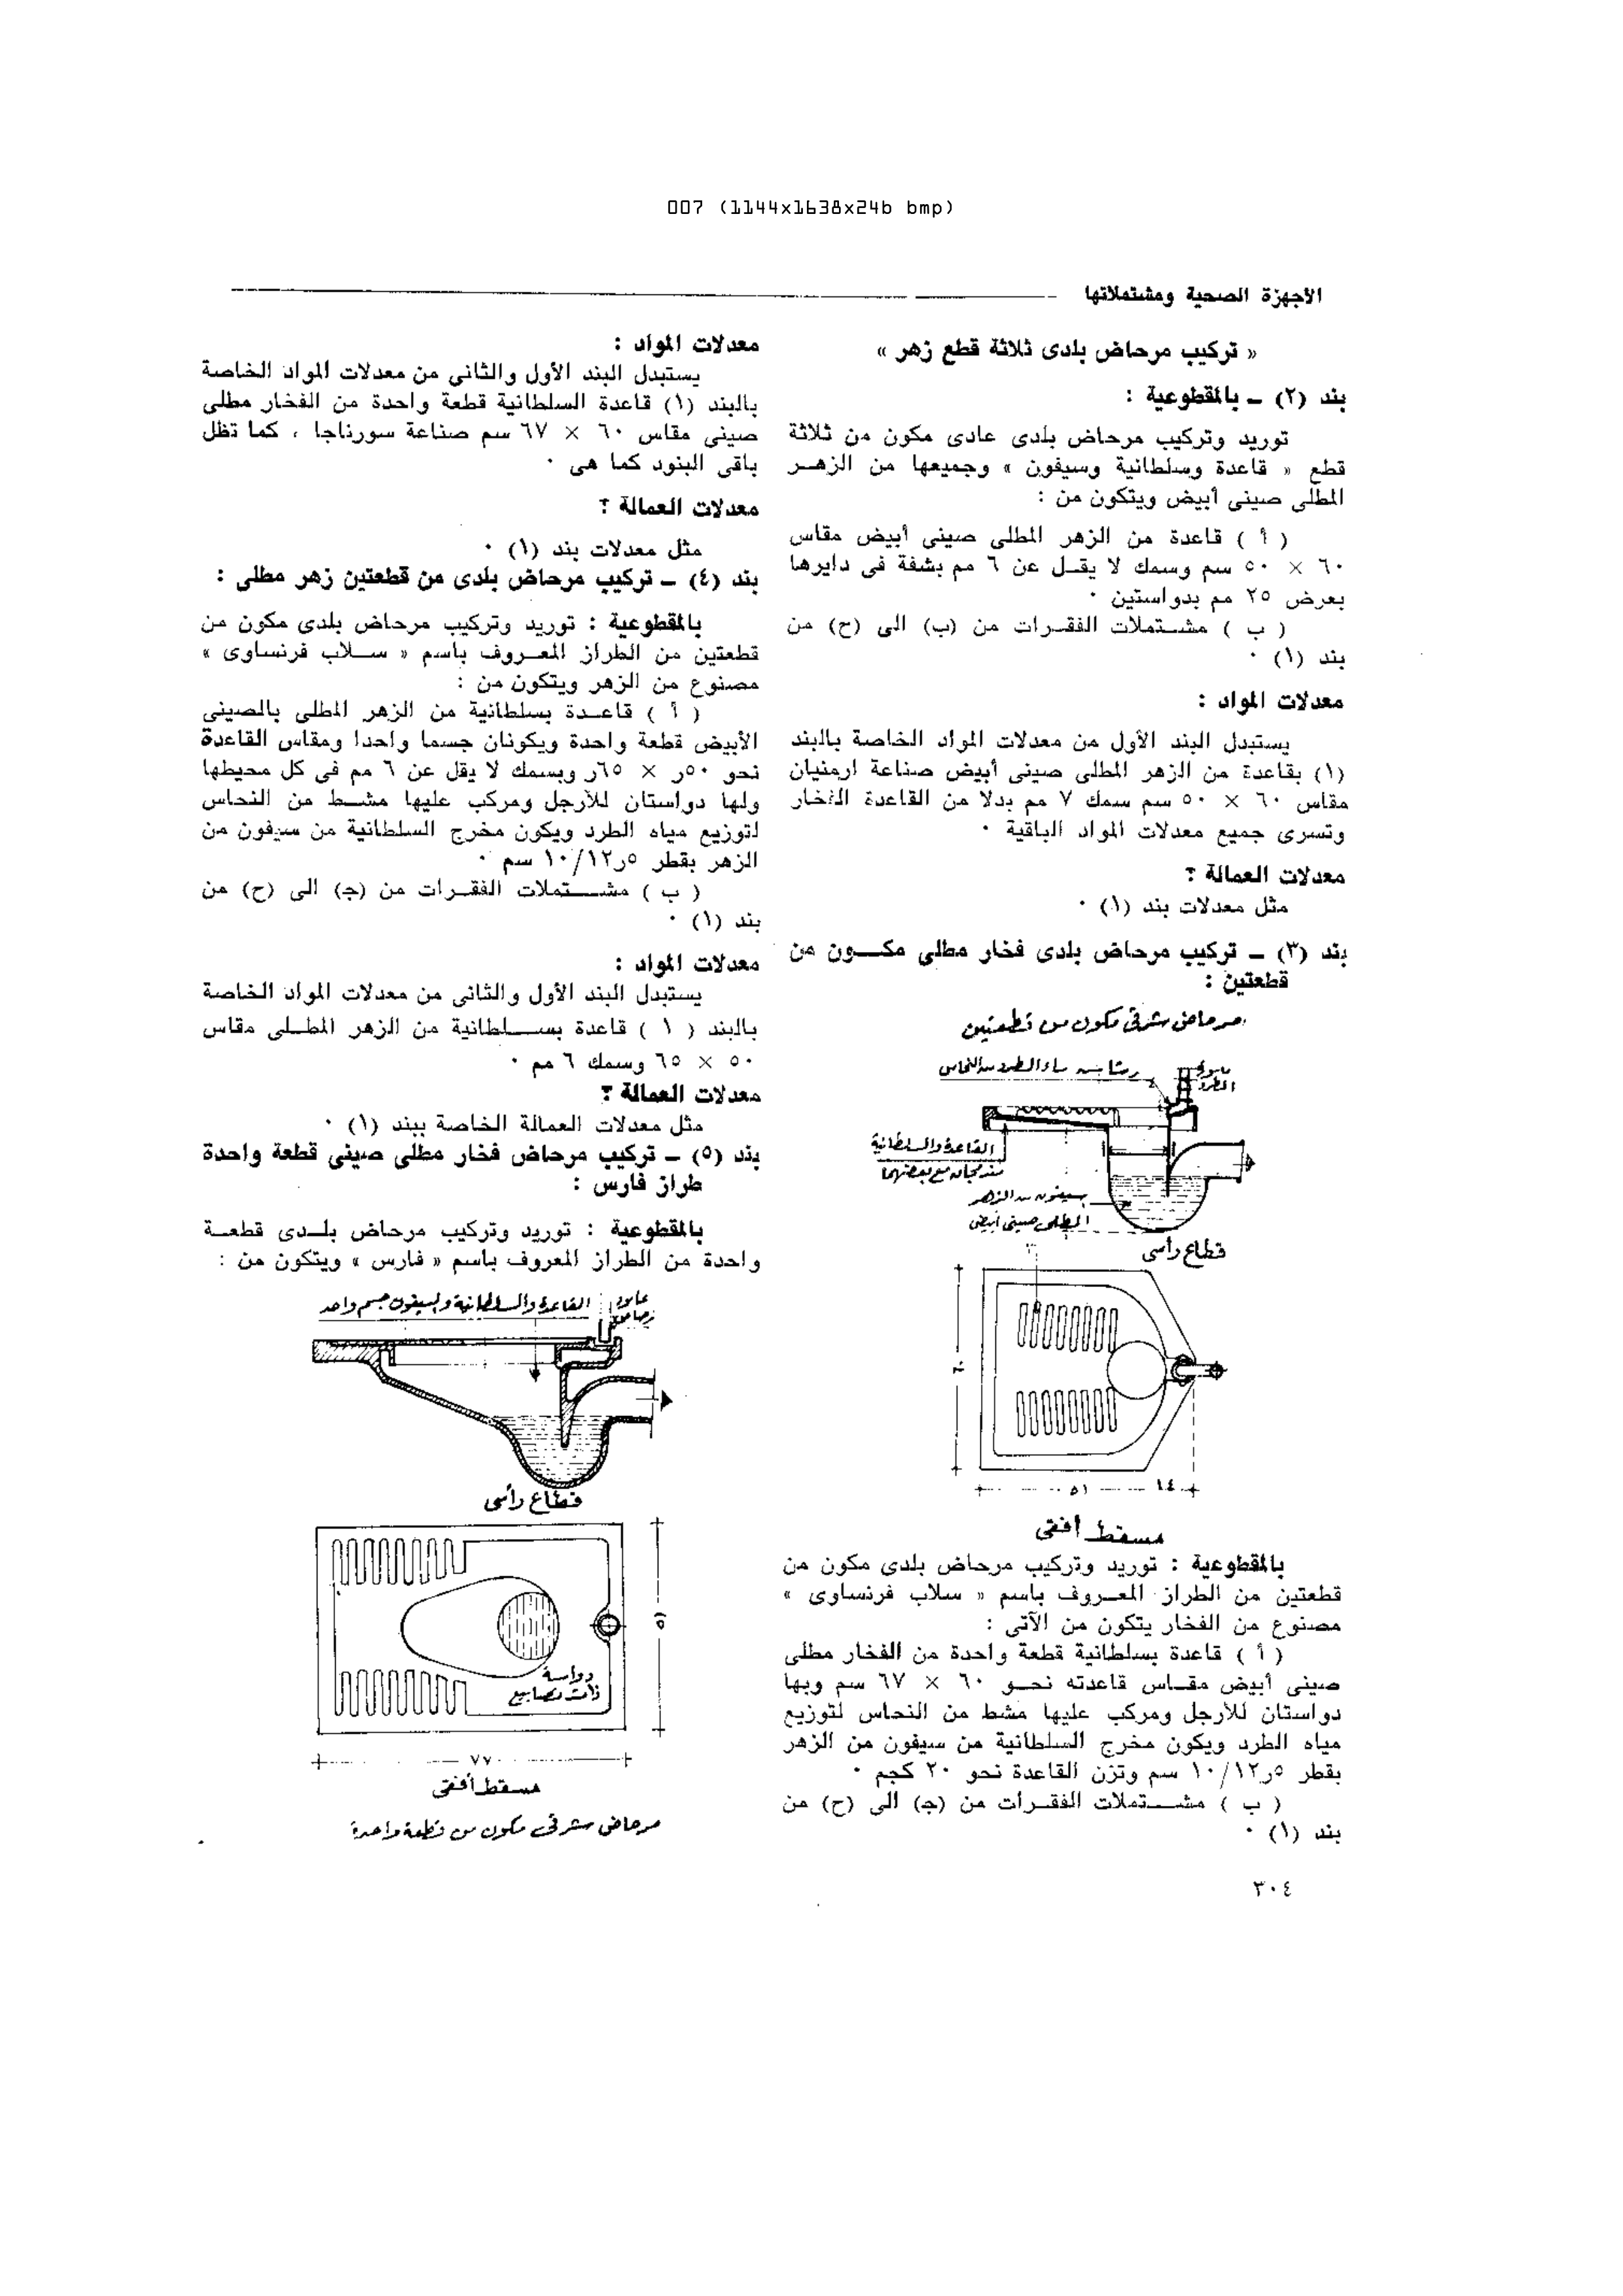 007 (1144x1638x24b bmp)
الأجهزة الصحية ومشتملاتها
« تركيب مرحاض بلدى ثلاثة قطع زهر »
بند (٢) ــ بالمقطوعية :
توريد وتركيب مرحاض بلدى عادى مكون من ثلاثة
قطع « قاعدة وسلطانية وسيفون » وجميعها من الزهــر
المطلى صينى أبيض ويتكون من :
( أ ) قاعدة من الزهر المطلى صينى أبيض مقاس
٦٠ × ٥٠ سم وسمك لا يقــل عن ٦ مم بشفة فى دايرها
بعرض ٢٥ مم بدواستين ٠
( ب ) مشــتملات الفقــرات من (ب) الى (ح) من
بند (١) ٠
معدلات المواد :
يستبدل البند الأول من معدلات المواد الخاصة بالبند
(١) بقاعدة من الزهر المطلى صينى أبيض صناعة ارمنيان
مقاس ٦٠ × ٥٠ سم سمك ٧ مم بدلا من القاعدة الفخار
وتسرى جميع معدلات المواد الباقية ٠
معدلات العمالة :
مثل معدلات بند (١) ٠
بند (٣) ــ تركيب مرحاض بلدى فخار مطلى مكــــون من
قطعتين :
مرحاض شرقى مكون من قطعتين
ماسورة الطرد
رشاش مياه الطرد من النحاس
القاعدة والسلطانية
مندمجان مع بعضهما
سيفون من الزهر
المطلى صينى أبيض
قطاع رأسى
٦٠
٥١
١٤
مسقط أفقى
بالمقطوعية : توريد وتركيب مرحاض بلدى مكون من
قطعتين من الطراز المعــروف باسم « سلاب فرنساوى »
مصنوع من الفخار يتكون من الآتى :
( أ ) قاعدة بسلطانية قطعة واحدة من الفخار مطلى
صينى أبيض مقــاس قاعدته نحــو ٦٠ × ٦٧ سم وبها
دواستان للأرجل ومركب عليها مشط من النحاس لتوزيع
مياه الطرد ويكون مخرج السلطانية من سيفون من الزهر
بقطر ٥ر١٠/١٢ سم وتزن القاعدة نحو ٢٠ كجم ٠
( ب ) مشـــتملات الفقــرات من (جـ) الى (ح) من
بند (١) ٠
معدلات المواد :
يستبدل البند الأول والثانى من معدلات المواد الخاصة
بالبند (١) قاعدة السلطانية قطعة واحدة من الفخار مطلى
صينى مقاس ٦٠ × ٦٧ سم صناعة سورناجا ، كما تظل
باقى البنود كما هى ٠
معدلات العمالة :
مثل معدلات بند (١) ٠
بند (٤) ــ تركيب مرحاض بلدى من قطعتين زهر مطلى :
بالمقطوعية : توريد وتركيب مرحاض بلدى مكون من
قطعتين من الطراز المعــروف باسم « ســلاب فرنساوى »
مصنوع من الزهر ويتكون من :
( أ ) قاعــدة بسلطانية من الزهر المطلى بالصينى
الأبيض قطعة واحدة ويكونان جسما واحدا ومقاس القاعدة
نحو ٥٠ر × ٦٥ر وبسمك لا يقل عن ٦ مم فى كل محيطها
ولها دواستان للأرجل ومركب عليها مشــط من النحاس
لتوزيع مياه الطرد ويكون مخرج السلطانية من سيفون من
الزهر بقطر ٥ر١٠/١٢ سم ٠
( ب ) مشـــتملات الفقــرات من (جـ) الى (ح) من
بند (١) ٠
معدلات المواد :
يستبدل البند الأول والثانى من معدلات المواد الخاصة
بالبند ( ١ ) قاعدة بســـلطانية من الزهر المطــلى مقاس
٥٠ × ٦٥ وسمك ٦ مم ٠
معدلات العمالة :
مثل معدلات العمالة الخاصة ببند (١) ٠
بند (٥) ــ تركيب مرحاض فخار مطلى صينى قطعة واحدة
طراز فارس :
بالمقطوعية : توريد وتركيب مرحاض بلــدى قطعــة
واحدة من الطراز المعروف باسم « فارس » ويتكون من :
القاعدة والسلطانية والسيفون جسم واحد
رصاص
قطاع رأسى
دواسة
ذات تصابيع
٥١
٧٧
مسقط أفقى
مرحاض شرقى مكون من قطعة واحدة
٣٠٤